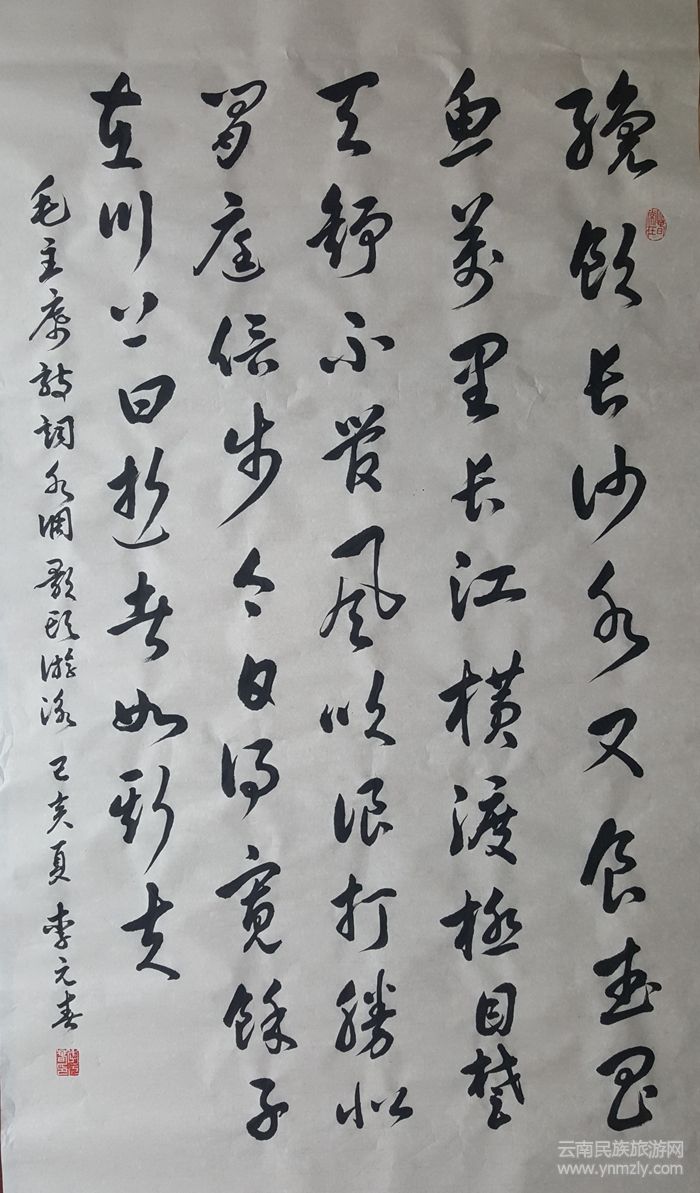 纔飲长沙水又食武昌
魚萬里长江横渡極目楚
天舒不管風吹浪打勝似
閒庭信步今日得寬餘子
在川上曰逝者如斯夫
毛主席詩詞水调歌頭游泳 己亥夏 李元春
云南民族旅游网
www.ynmzly.com